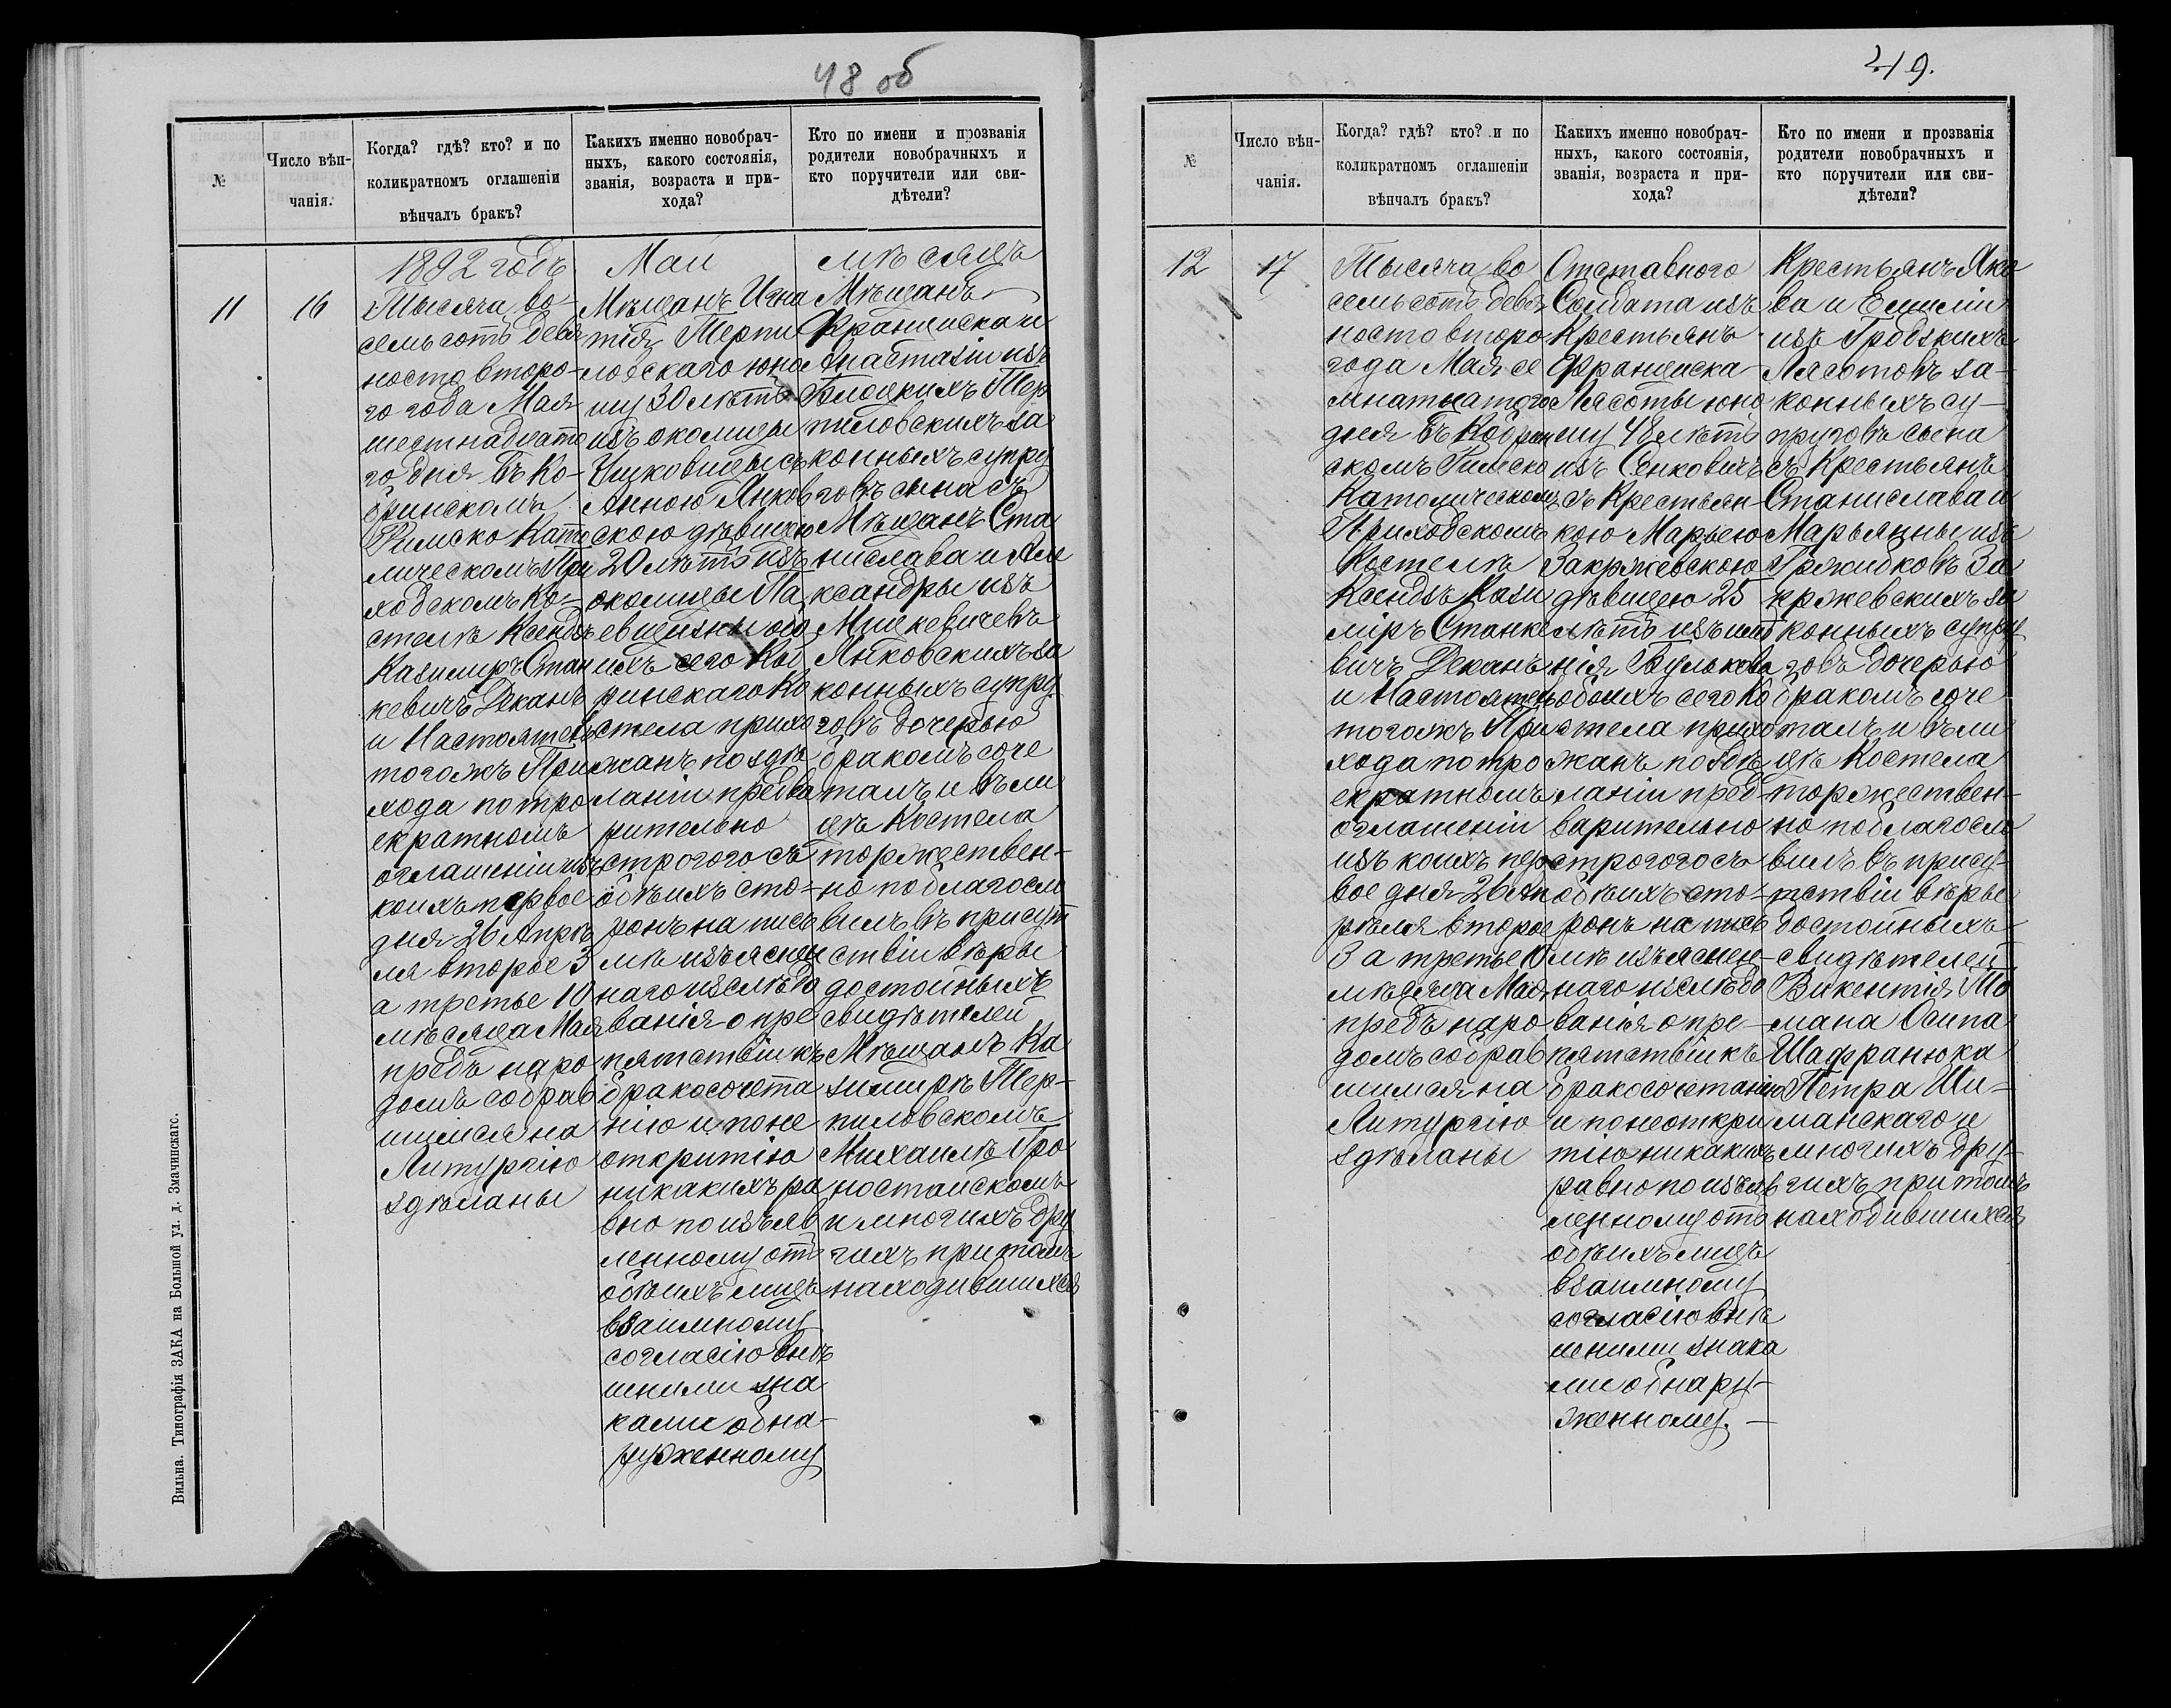 48 об
№
Число вѣн-
чанія.
Когда? гдѣ? кто? и по
коликратномъ оглашеніи
вѣнчалъ бракъ?
Какихъ именно новобрач-
ныхъ, какого состоянія,
званія, возраста и при-
хода?
Кто по имени и прозванія
родители новобрачныхъ и
кто поручители или сви-
дѣтели?
1892 годъ Май мѣсяцъ
11
16
Тысяча во-
семьсотъ девя
носто второ-
го года Мая
шестнадцато
го дня въ Ко-
бринскомъ
Римско Като
лическомъ При
ходскомъ Ко-
стелѣ Ксендзъ
Казимиръ Стан
кевичъ Деканъ
и Настоятель
тогожъ При
хода по тро
екратномъ
оглашеніи изъ
коихъ первое
дня 26 Апрѣ
ля второе 3
а третье 10
мѣсяца Мая
предъ наро
домъ собрав
шимся на
Литургію
здѣланы
Мѣщанъ Игна
тія Терпи
ловскаго юно
шу 30 лѣтъ
изъ околицы
съ
Анною Янков
скою дѣвицею
20 лѣтъ изъ
околицы Па
евщизны обо
ихъ сего Коб
ринскаго Ко
стела прихо
жанъ по здѣ
ланіи предва
рительно
строгого съ
обѣихъ сто-
ронъ на пись
мѣ изъяснен
наго изслѣдо
ванія о пре
пятствіи къ
бракосочета
нію и по не
откритію
никакихъ ра
вно по изъяв
ленному отъ
обѣихъ лицъ
взаимному
согласію внѣ
шними зна
ками обна-
руженному
Мѣщанъ
Францишка и
Анастазіи изъ
Терпиловскихъ за
конныхъ супру
говъ сына съ
Мѣщанъ Ста
нислава и Але
ксандры изъ
Мицкевичевъ
Янковскихъ за
конныхъ супру
говъ дочерью
бракомъ соче
талъ и въ ли
цѣ Костела
торжествен-
но поблагосло
вилъ въ присут
ствіи вѣры
достойныхъ
свидѣтелей
Мѣщанъ Ка
зимирѣ Тер-
пиловскомъ
Михаилѣ Гро
ностайскомъ
и многихъ дру
гихъ при томъ
находившихся
Вильна. Типографія ЗАКА на Большой ул. д. Змачинскаго.
49.
№
Число вѣн-
чанія.
Когда? гдѣ? кто? и по
коликратномъ оглашеніи
вѣнчалъ бракъ?
Какихъ именно новобрач-
ныхъ, какого состоянія,
званія, возраста и при-
хода?
Кто по имени и прозванія
родители новобрачныхъ и
кто поручители или сви-
дѣтели?
12
17
Тысяча во
семьсотъ девя
носто второ-
года Мая се
мнатцатого
дня въ Кобрин
скомъ Римско
Католическомъ
Приходскомъ
Костелѣ
Ксендзъ Кази
міръ Станке
вичъ Деканъ
и Настоятель
тогожъ При
хода по тро
екратномъ
оглашеніи
изъ коихъ пер
вое дня 26 Ап
рѣля второе
3 а третье 10
мѣсяца Мая
предъ наро
домъ собрав
шимся на
Литургію
здѣланы
Отставного
Солдата изъ
Крестьянъ
Францишка
Лясоты юно
шу 48 лѣтъ
изъ Сенковичъ
съ Крестьян-
кою Марьею
Закржевскою
дѣвицею 25
лѣтъ изъ имѣ
нія Булькова
обоихъ сего Ко
стела прихо
жанъ по здѣ
ланіи пред-
варительно
строгого съ
обѣихъ сто-
ронъ на пись
мѣ изъяснен-
наго изслѣдо
ванія о пре-
пятствіи къ
бракосочетанію
и по не откри
тію никакихъ
равно по изъяв
ленному отъ
обѣихъ лицъ
взаимному
согласію внѣ
шними знака
ми обнару-
женному.
Крестьянъ Яко
ва и Емиліи
изъ Гродзкихъ
Лясотовъ за-
конныхъ су-
пруговъ сына
съ Крестьянъ
Станислава и
Марьянны изъ
Гржибковъ За
кржевскихъ за
конныхъ супру
говъ дочерью
бракомъ соче
талъ и въ ли
цѣ Костела
торжествен-
но поблагосло
вилъ въ присут
ствіи вѣры
достойныхъ
свидѣтелей
Викентія То
мана Осипа
Шафранюка
Петра Ши-
манскаго и
многихъ дру-
гихъ при томъ
находившихся